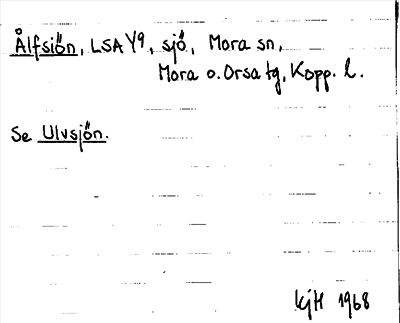 Ålfsiön, LSA Y9, sjö, Mora sn,
Mora o. Orsa tg, Kopp. l.
Se Ulvsjön.
KjH 1968